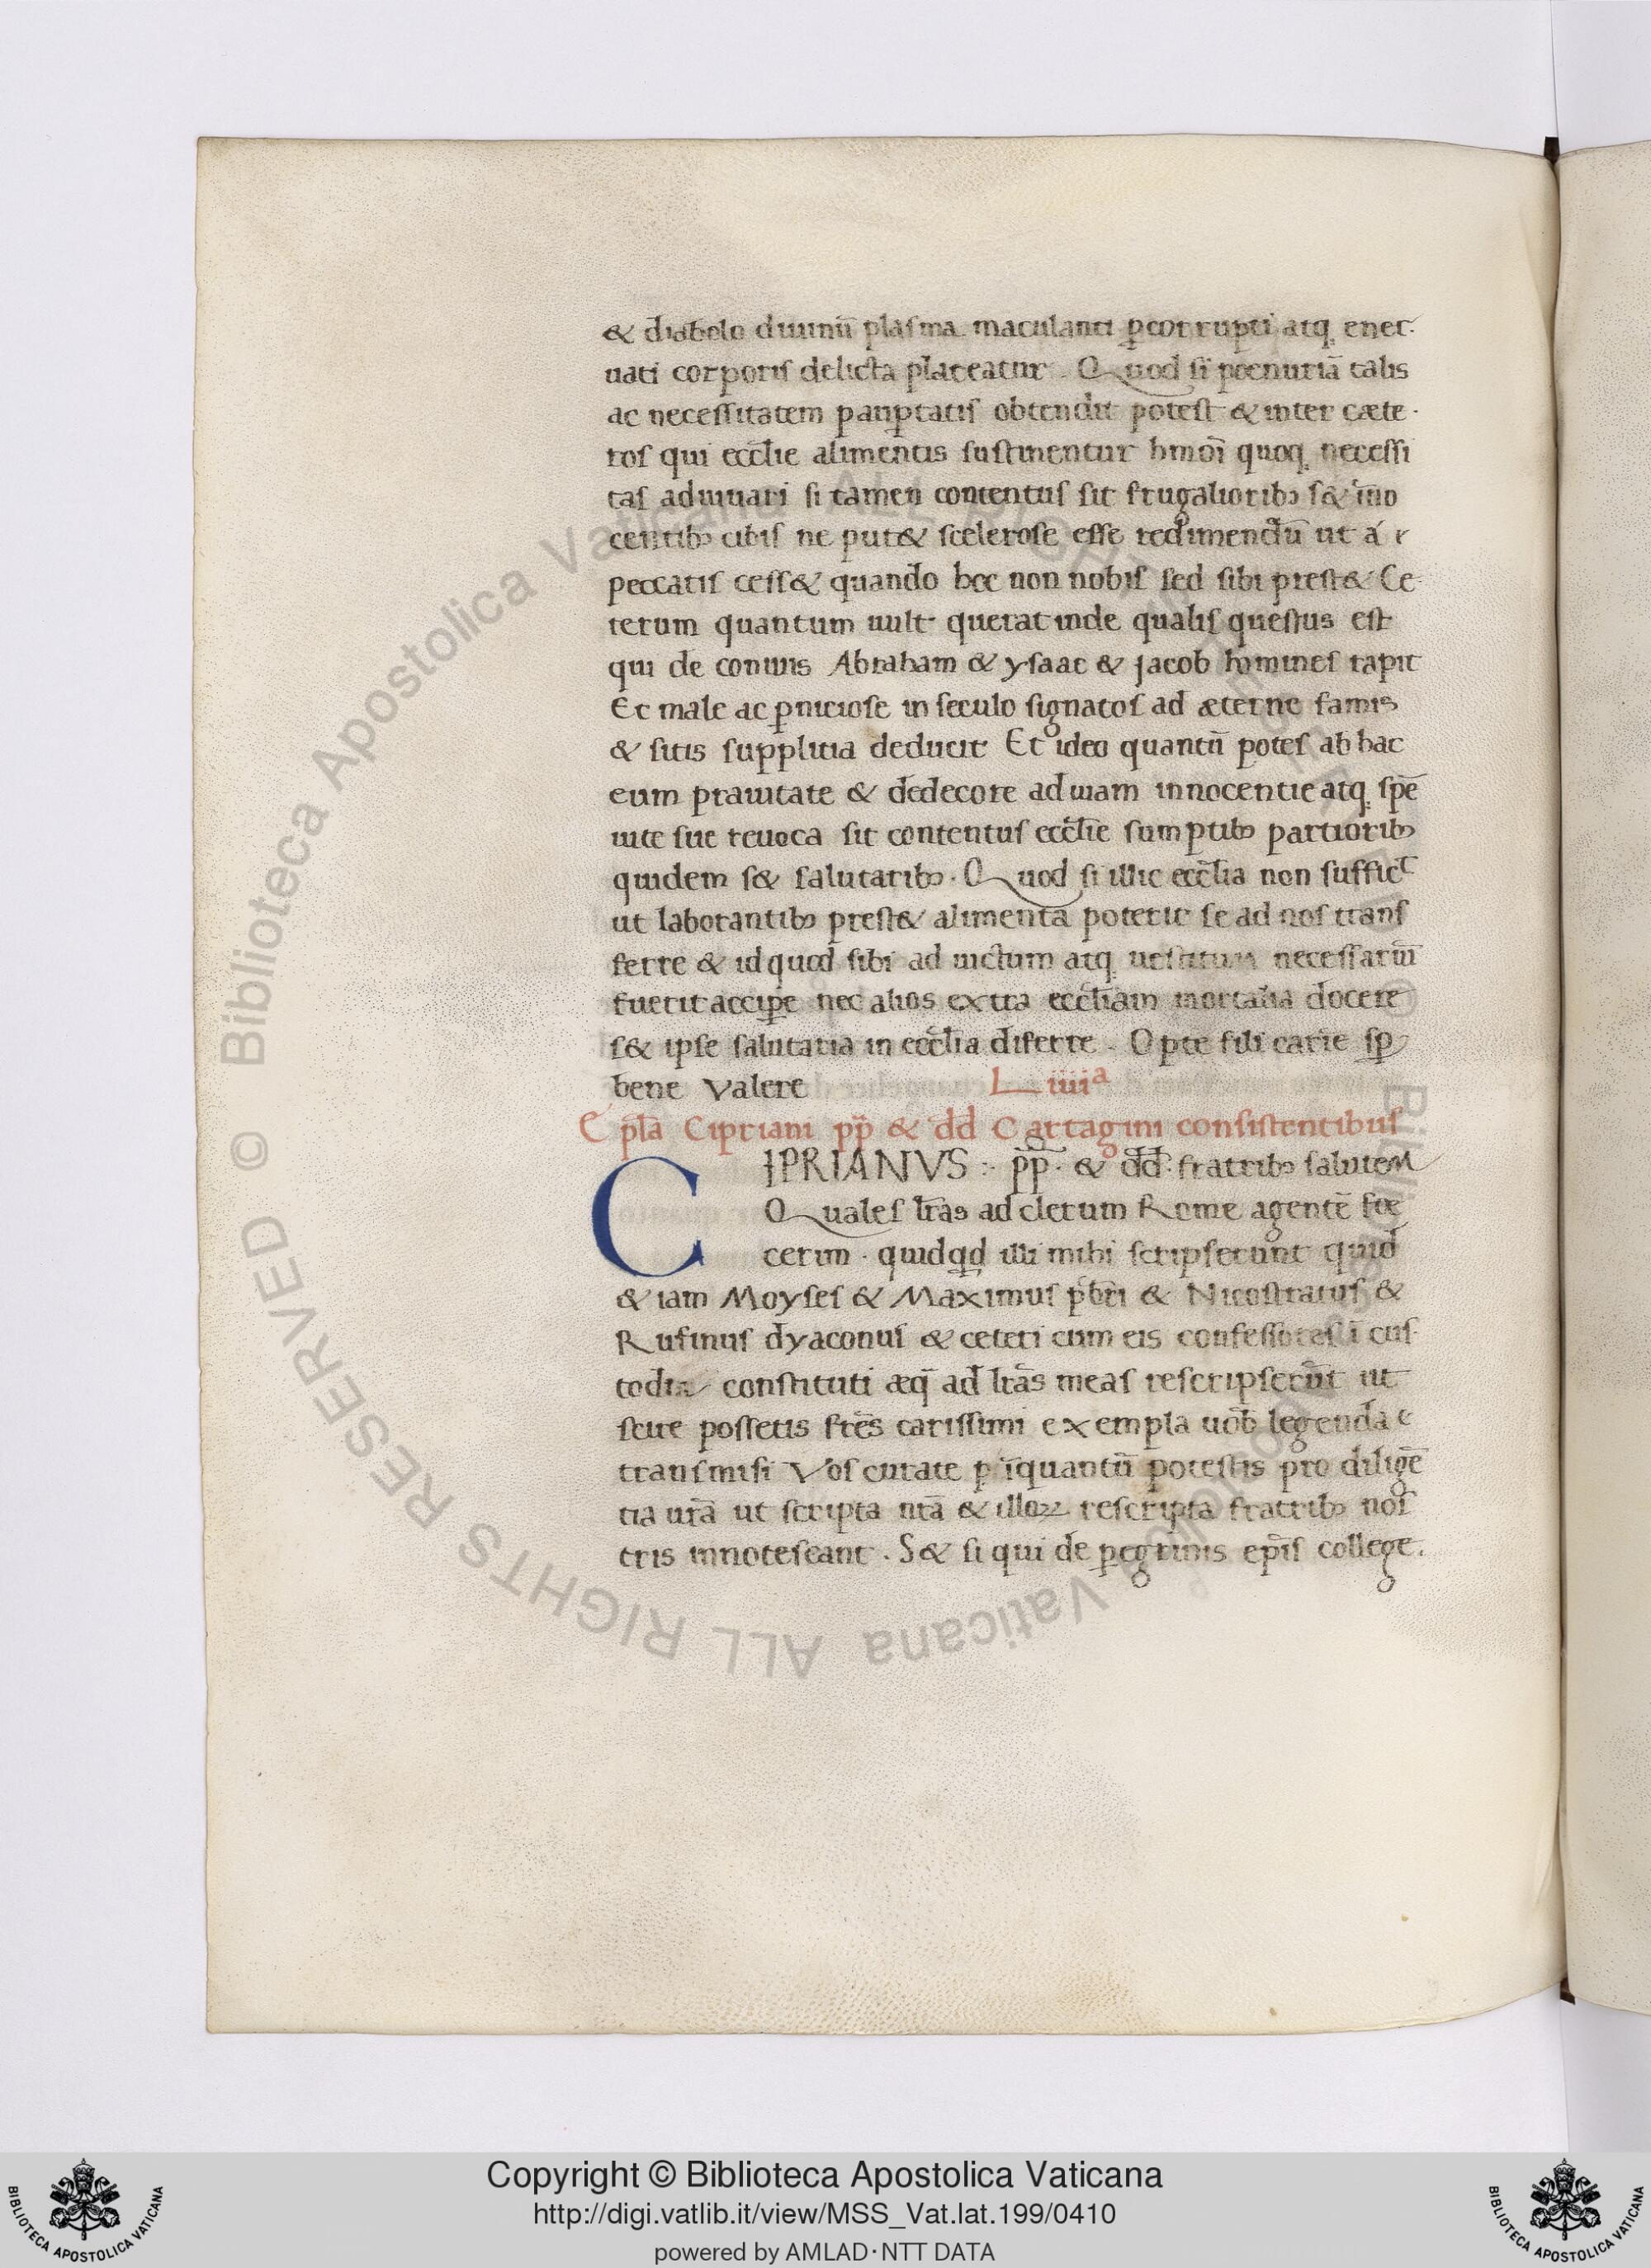 & diabolo diuinū plaſma maculanti ꝑcorrupti atq; ener-
uati corporiſ delicta placeatur . Quod ſi poenuriā talis
ac neceſſitatem pauꝑtatiſ obtendit poteſt & inter cæte-
roſ qui eccl̄ie alimentis ſuſtinentur hmōi quoq; neceſſi
taſ adiuuari ſi tamen contentuſ ſit frugalioribꝫ ſ& īno
centibꝫ cibiſ ne put& ſceleroſe eſſe redimendū ut á
peccatiſ ceſſ& quando hec non nobiſ ſed ſibi preſt& Ce-
terum quantum uult querat inde qualiſ queſtus eſt
qui de conuiuis Abraham & yſaac & jacob homineſ rapit
Et male ac ꝑnicioſe in ſeculo ſignatoſ ad æterne famis
& ſitis ſupplitia deducit Et ideo quantū poteſ ab hac
eum prauitate & dedecore ad uiam innocentie atq; ſpē
uite ſue reuoca ſit contentuſ eccl̄ie ſumptibꝫ partioribꝫ
quidem ſ& ſalutaribꝫ . Quod ſi illic eccl̄ia non ſufficᵗ
ut laborantibꝫ preſt& alimenta poterit ſe ad noſ tranſ
ferre & id quod ſibi ad uictum atq; ueſtitum neceſſariū
fuerit acciꝑe nec alios extra eccl̄iam mortalia docere
ſ& ipſe ſalutaria in eccl̄ia diſerre . Opte fili cariē ſꝑ
bene Valere L iiiiᵃ
Epl̄a Cipriani pp̄ & dd̄ Cartagini conſiſtentibuſ
CIPRIANVS : pp̄ . & dd̄ : fratribꝫ ſalutem
Qualeſ lr̄as ad clerum Rome agentē foe
cerim . quidqd illi mihi ſcripſerunt quid
& iam Moyſeſ & Maximuſ pb̄ri & Nicoſtratuſ &
Rufinuſ dyaconuſ & ceteri cum eis confeſſoreſ ī cuſ-
todia conſtituti æq̄ ad lr̄as meaſ reſcripſerūt ut
ſcire poſſetis fr̄es cariſſimi exempla uob̄ legenda
tranſmiſi Voſ curate ꝑ īquantū poteſtis pro diligē
tia ur̄a ut ſcripta nr̄a & illoꝝ reſcripta fratribꝫ noſ
tris innoteſcant . S& ſi qui de ꝑegrinis ep̄iſ college.
© Biblioteca Apostolica Vaticana ALL RIGHTS RESERVED
Copyright © Biblioteca Apostolica Vaticana
http://digi.vatlib.it/view/MSS_Vat.lat.199/0410
powered by AMLAD·NTT DATA
BIBLIOTECA APOSTOLICA VATICANA
BIBLIOTECA APOSTOLICA VATICANA